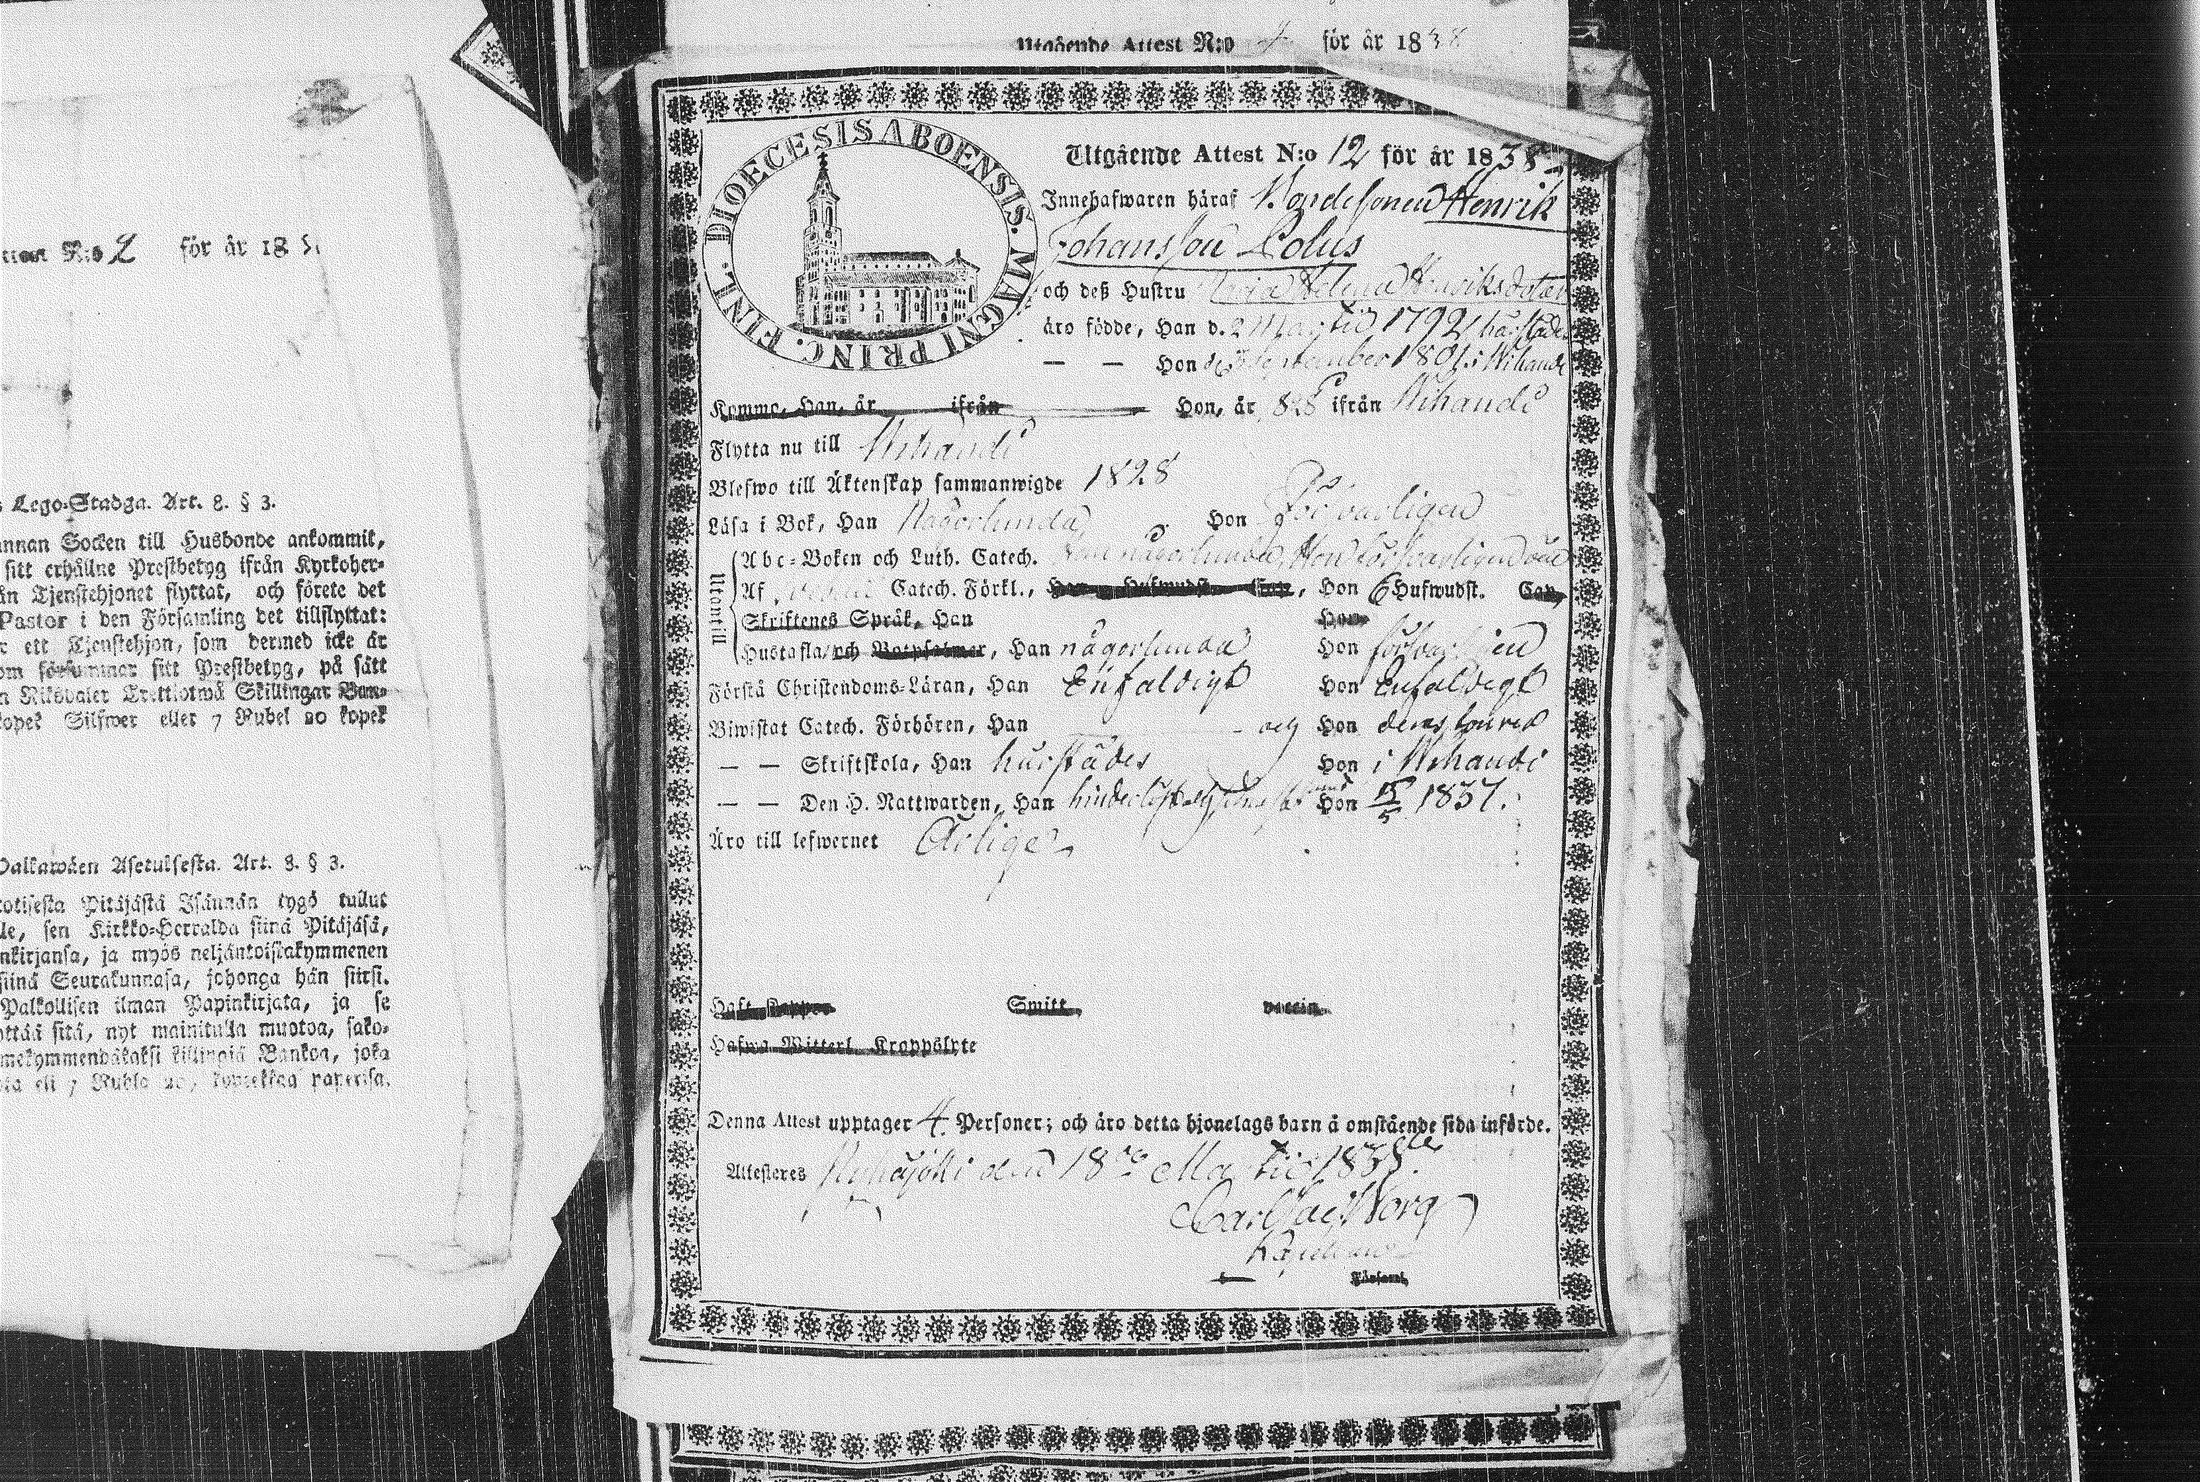 Utgående Attest N:o för år 1838
N:o 2 för år 18
Lego-Stadga. Art. 8. § 3.
annan Socken till Husbonde ankommit,
sitt erhållne Prestbetyg ifrån Kyrkoher-
Tjenstehjonet flyttat, och förete det
Pastor i den Församling det tillflyttat:
ett Tjenstehjon, som dermed icke är
försummar sitt Prestbetyg, på sätt
Riksdaler Trettiotwå Skillingar Ban-
kopek Silfwer eller 7 Rubel 20 kopek
Palkawäen Asetuksesta. Art. 8. § 3.
Pitäjästä Isännän tygö tullut
sen Kirkko-Herralda siinä Pitäjäsä,
ja myös neljäntoistakymmenen
siinä Seurakunnasa, johonga hän siirsi.
Palkollisen ilman Papinkirjata, ja se
sitä, nyt mainitulla muotoa, sako-
killingiä Bankoa, joka
eli 7 Rubla 20 kopeekkaa paperisa.
DIOECESIS ABOENSIS. MAGNI PRINC. FINL.
Utgående Attest N:o 12 för år 1838
Innehafwaren häraf Bondesonen Henrik
Johansson Lolus
och deß Hustru Maria Helena Henriksdotter
äro födde, Han d. 2 Martii 1792 härstädes
— — Hon d. September 1801 i Wihandi
Komne, Han, år ifrån Hon, år 828 ifrån Wihandi
Flytta nu till Wihandi
Blefwo till Äktenskap sammanwigde 1828
Läsa i Bok, Han Någorlunda Hon Förswarligen
Utantill
Abc-Boken och Luth. Catech. Han någorlunda, Hon förswarligen
Af Catech. Förkl., Hon 6 Hufwudst. Cap.
Skriftenes Språk, Han Hon
Hustafla och Botpsalmer, Han någorlunda Hon förswarligen
Förstå Christendoms-Läran, Han Enfaldigt Hon Enfaldigt
Biwistat Catech. Förhören, Han och Hon
— — Skriftskola, Han härstädes Hon i Wihandi
— — Den H. Nattwarden, Han Hon 15/5 1837.
Äro till lefwernet Ärlige
Haft Koppor Smitt. vaccin.
Hafwa Witterl. Kroppslyte
Denna Attest upptager 4 Personer; och äro detta hjonelags barn å omstående sida införde.
Attesteres Pyhäjoki den 18de Martii 1838.
Carl Borg
Kapellan
Församl.